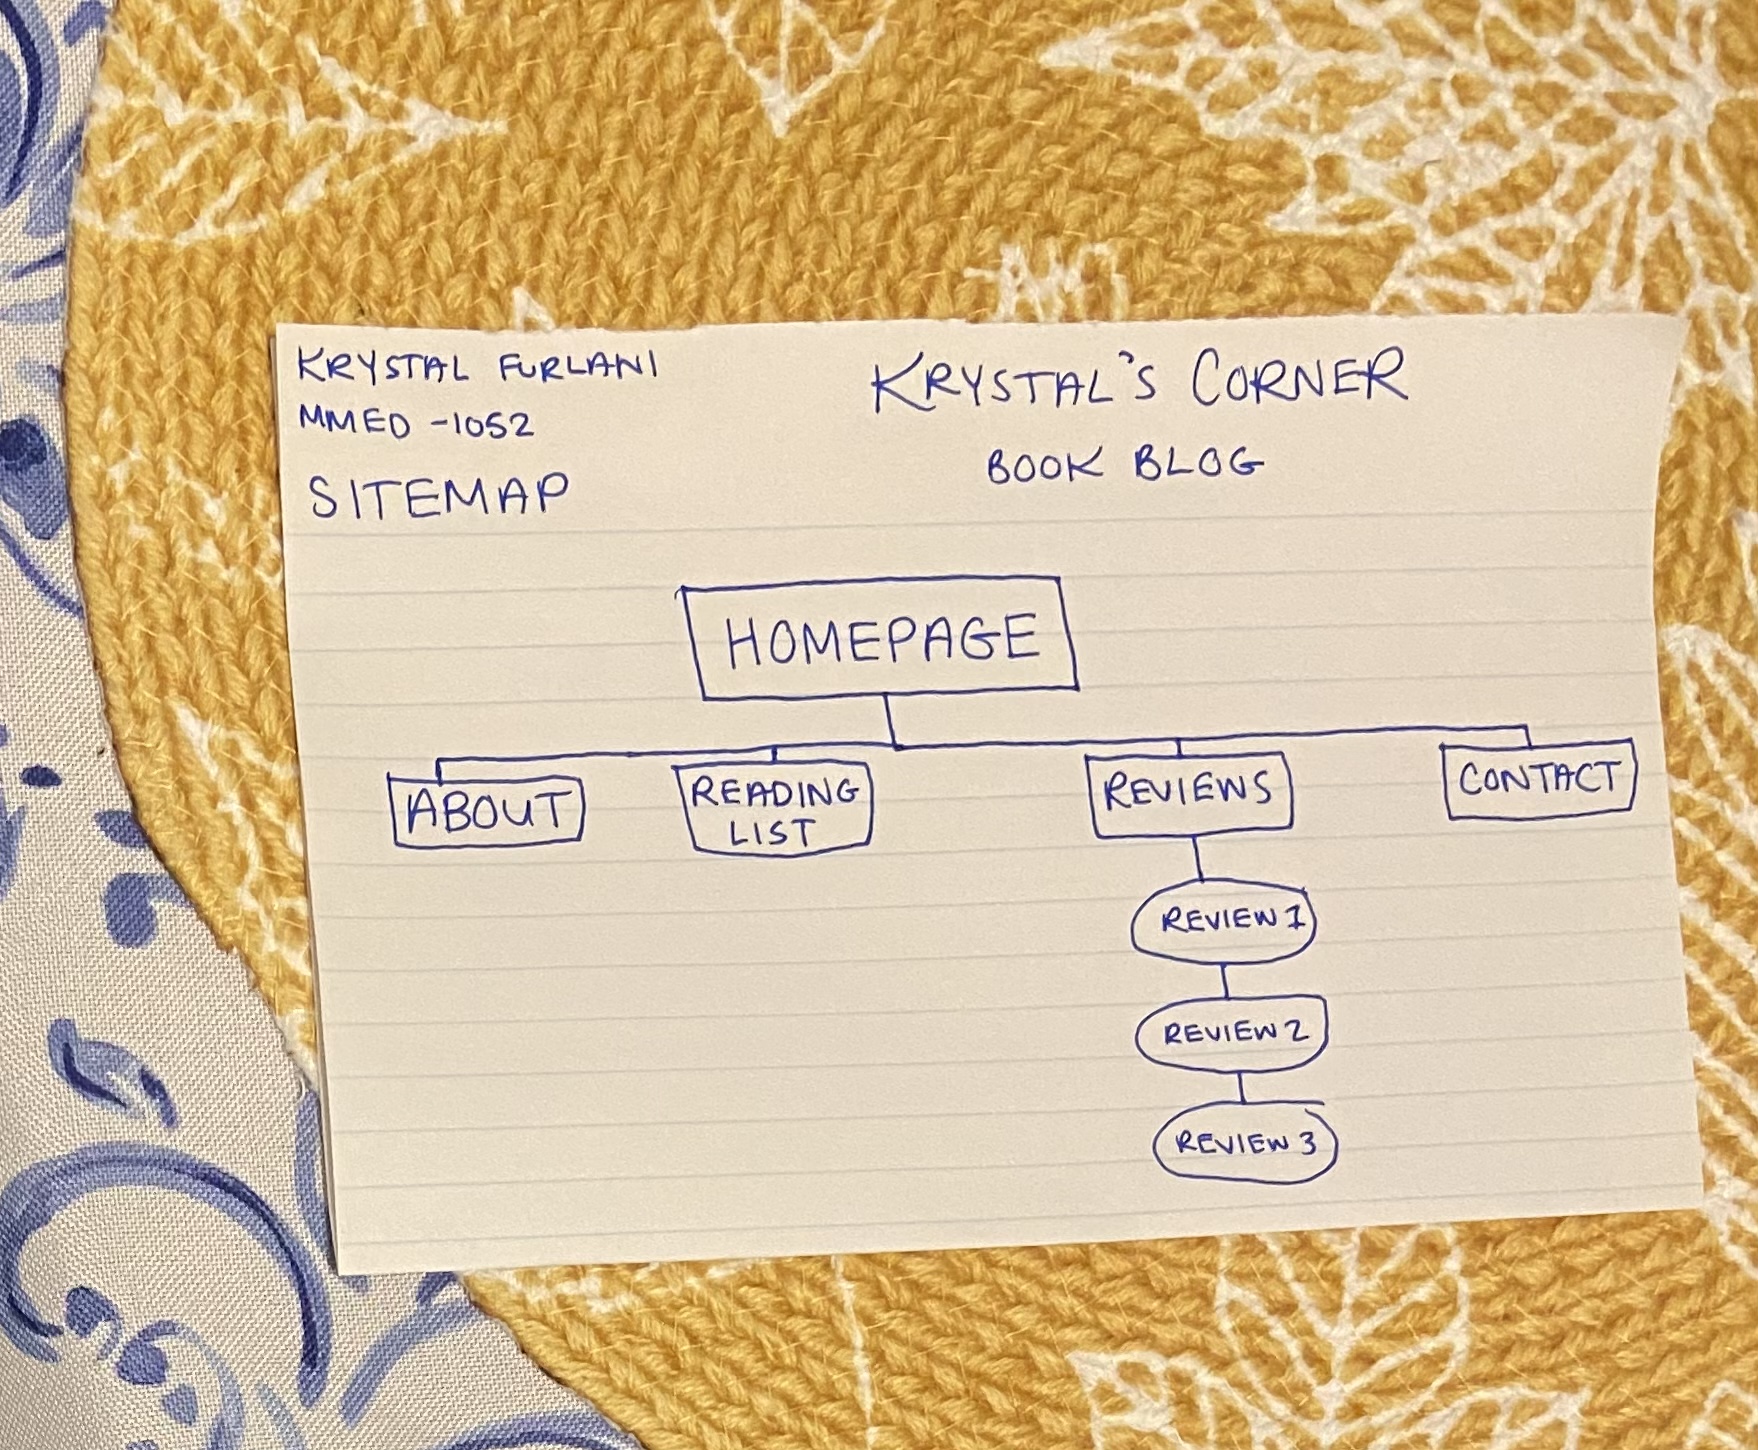 KRYSTAL FURLANI
MMED -1052
SITEMAP
KRYSTAL'S CORNER
BOOK BLOG
HOMEPAGE
ABOUT
READING
LIST
REVIEWS
CONTACT
REVIEW 1
REVIEW 2
REVIEW 3